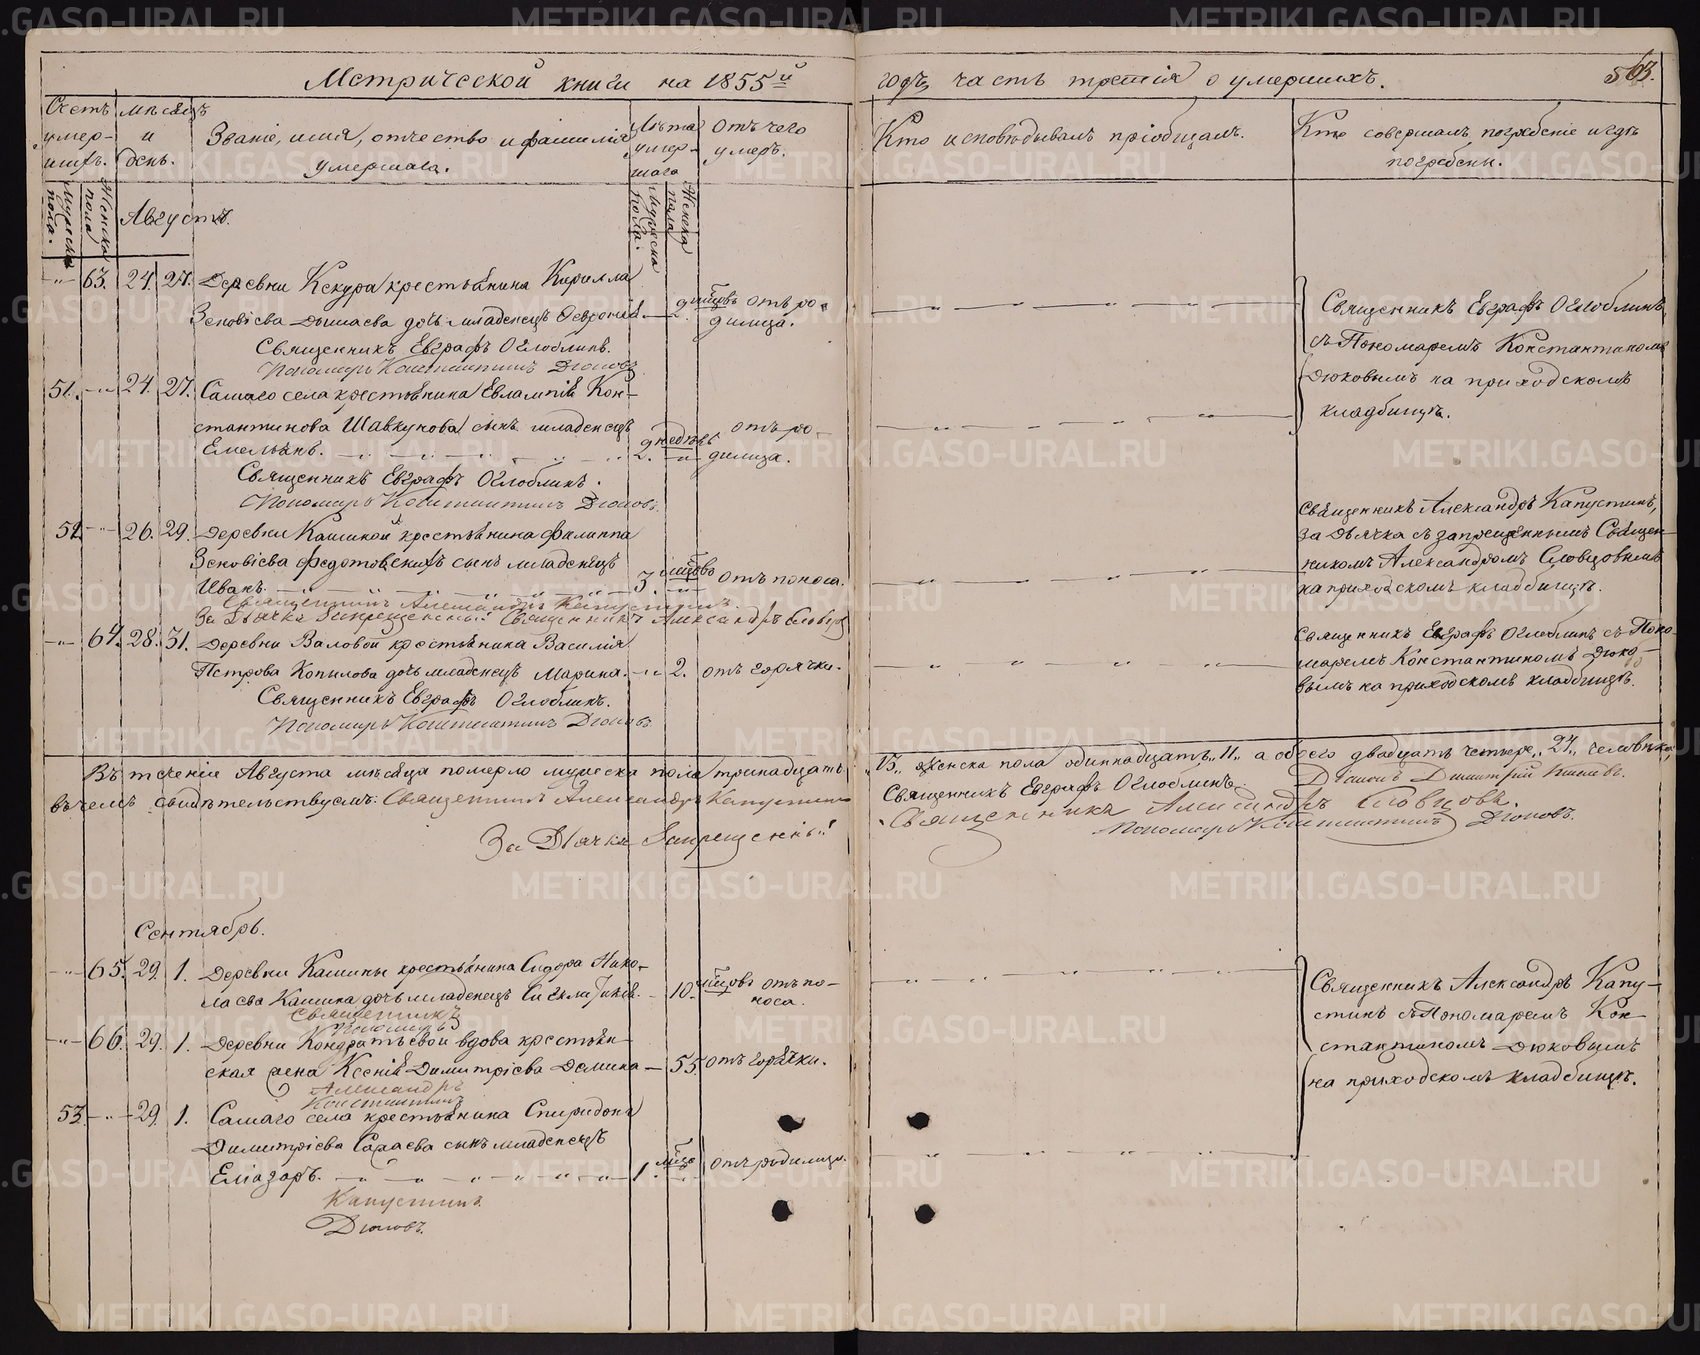 Метрической книги на 1855й годъ, часть третія о умершихъ.
563.
Счетъ умер- шихъ.
Мужеска пола.
Женска пола
мѣсяцъ и день.
Званіе, имя, отчество и фамилія умершаго.
Лѣта умер- шаго
Мужеска пола.
Женска пола
Отъ чего умеръ.
Кто исповѣдывалъ пріобщалъ.
Кто совершалъ погребеніе и гдѣ погребены.
Августъ.
63. 24. 27. Деревни Кекура крестьянина Кирилла
Зеновіева дочь младенецъ Февронія 2 мѣсцовъ отъ ро- димца.
Священникъ Евграфъ Оглоблинъ.
Пономарь Константинъ Дюковъ
Священникъ Евграфъ Оглоблинъ
съ Пономаремъ Константиномъ
Дюковымъ на приходскомъ
кладбищѣ.
51. 24. 27. Самаго села крестьянина Евлампія Кон-
стантинова Шавкунова сынъ младенецъ
Емельянъ. 2. недѣль отъ ро- димца.
Священникъ Евграфъ Оглоблинъ.
Пономарь Константинъ Дюковъ.
52. 26. 29. Деревни Кашиной крестьянина Филиппа
Зеновіева Федотовскихъ сынъ младенецъ
Иванъ. 3. мѣсцовъ отъ поноса.
Священникъ Александръ Капустинъ.
За Дьячка Запрещенный Священникъ Александръ Словцовъ
Священникъ Александръ Капустинъ,
за Дьячка съ запрещеннымъ Священ-
никомъ Александромъ Словцовымъ
на приходскомъ кладбищѣ.
64. 28. 31. Деревни Валовой крестьянина Василія
Петрова Копылова дочь младенецъ Марина. 2. отъ горячки.
Священникъ Евграфъ Оглоблинъ.
Пономарь Константинъ Дюковъ
Священникъ Евграфъ Оглоблинъ съ Поно-
маремъ Константиномъ Дюко-
вымъ на приходскомъ кладбищѣ.
Въ теченіе Августа мѣсяца померло мужеска пола тринадцать „13„ женска пола одиннадцать „11„ а обоего двадцать четыре „24„ человѣка,
въ чемъ свидѣтельствуемъ: Священникъ Александръ Капустинъ
Священникъ Евграфъ Оглоблинъ
Діаконъ Димитрій
За Дьячка Запрещенный Священникъ Александръ Словцовъ.
Пономарь Константинъ Дюковъ.
Сентябрь.
65. 29. 1. Деревни Кашины крестьянина Сидора Нико-
лаева Кашина дочь младенецъ Синклитикія. 10. мѣсцовъ отъ по- носа.
Священникъ
Пономарь
66. 29. 1. Деревни Кондратьевой вдова крестьян-
ская жена Ксенія Димитріева Демина 55 отъ горячки.
Александръ
Константинъ
53. 29. 1. Самаго села крестьянина Спиридона
Димитріева Сараева сынъ младенецъ
Еліазаръ. 1. мѣсца отъ родимца.
Капустинъ
Дюковъ.
Священникъ Александръ Капу-
стинъ съ Пономаремъ Кон-
стантиномъ Дюковымъ
на приходскомъ кладбищѣ.
METRIKI.GASO-URAL.RU